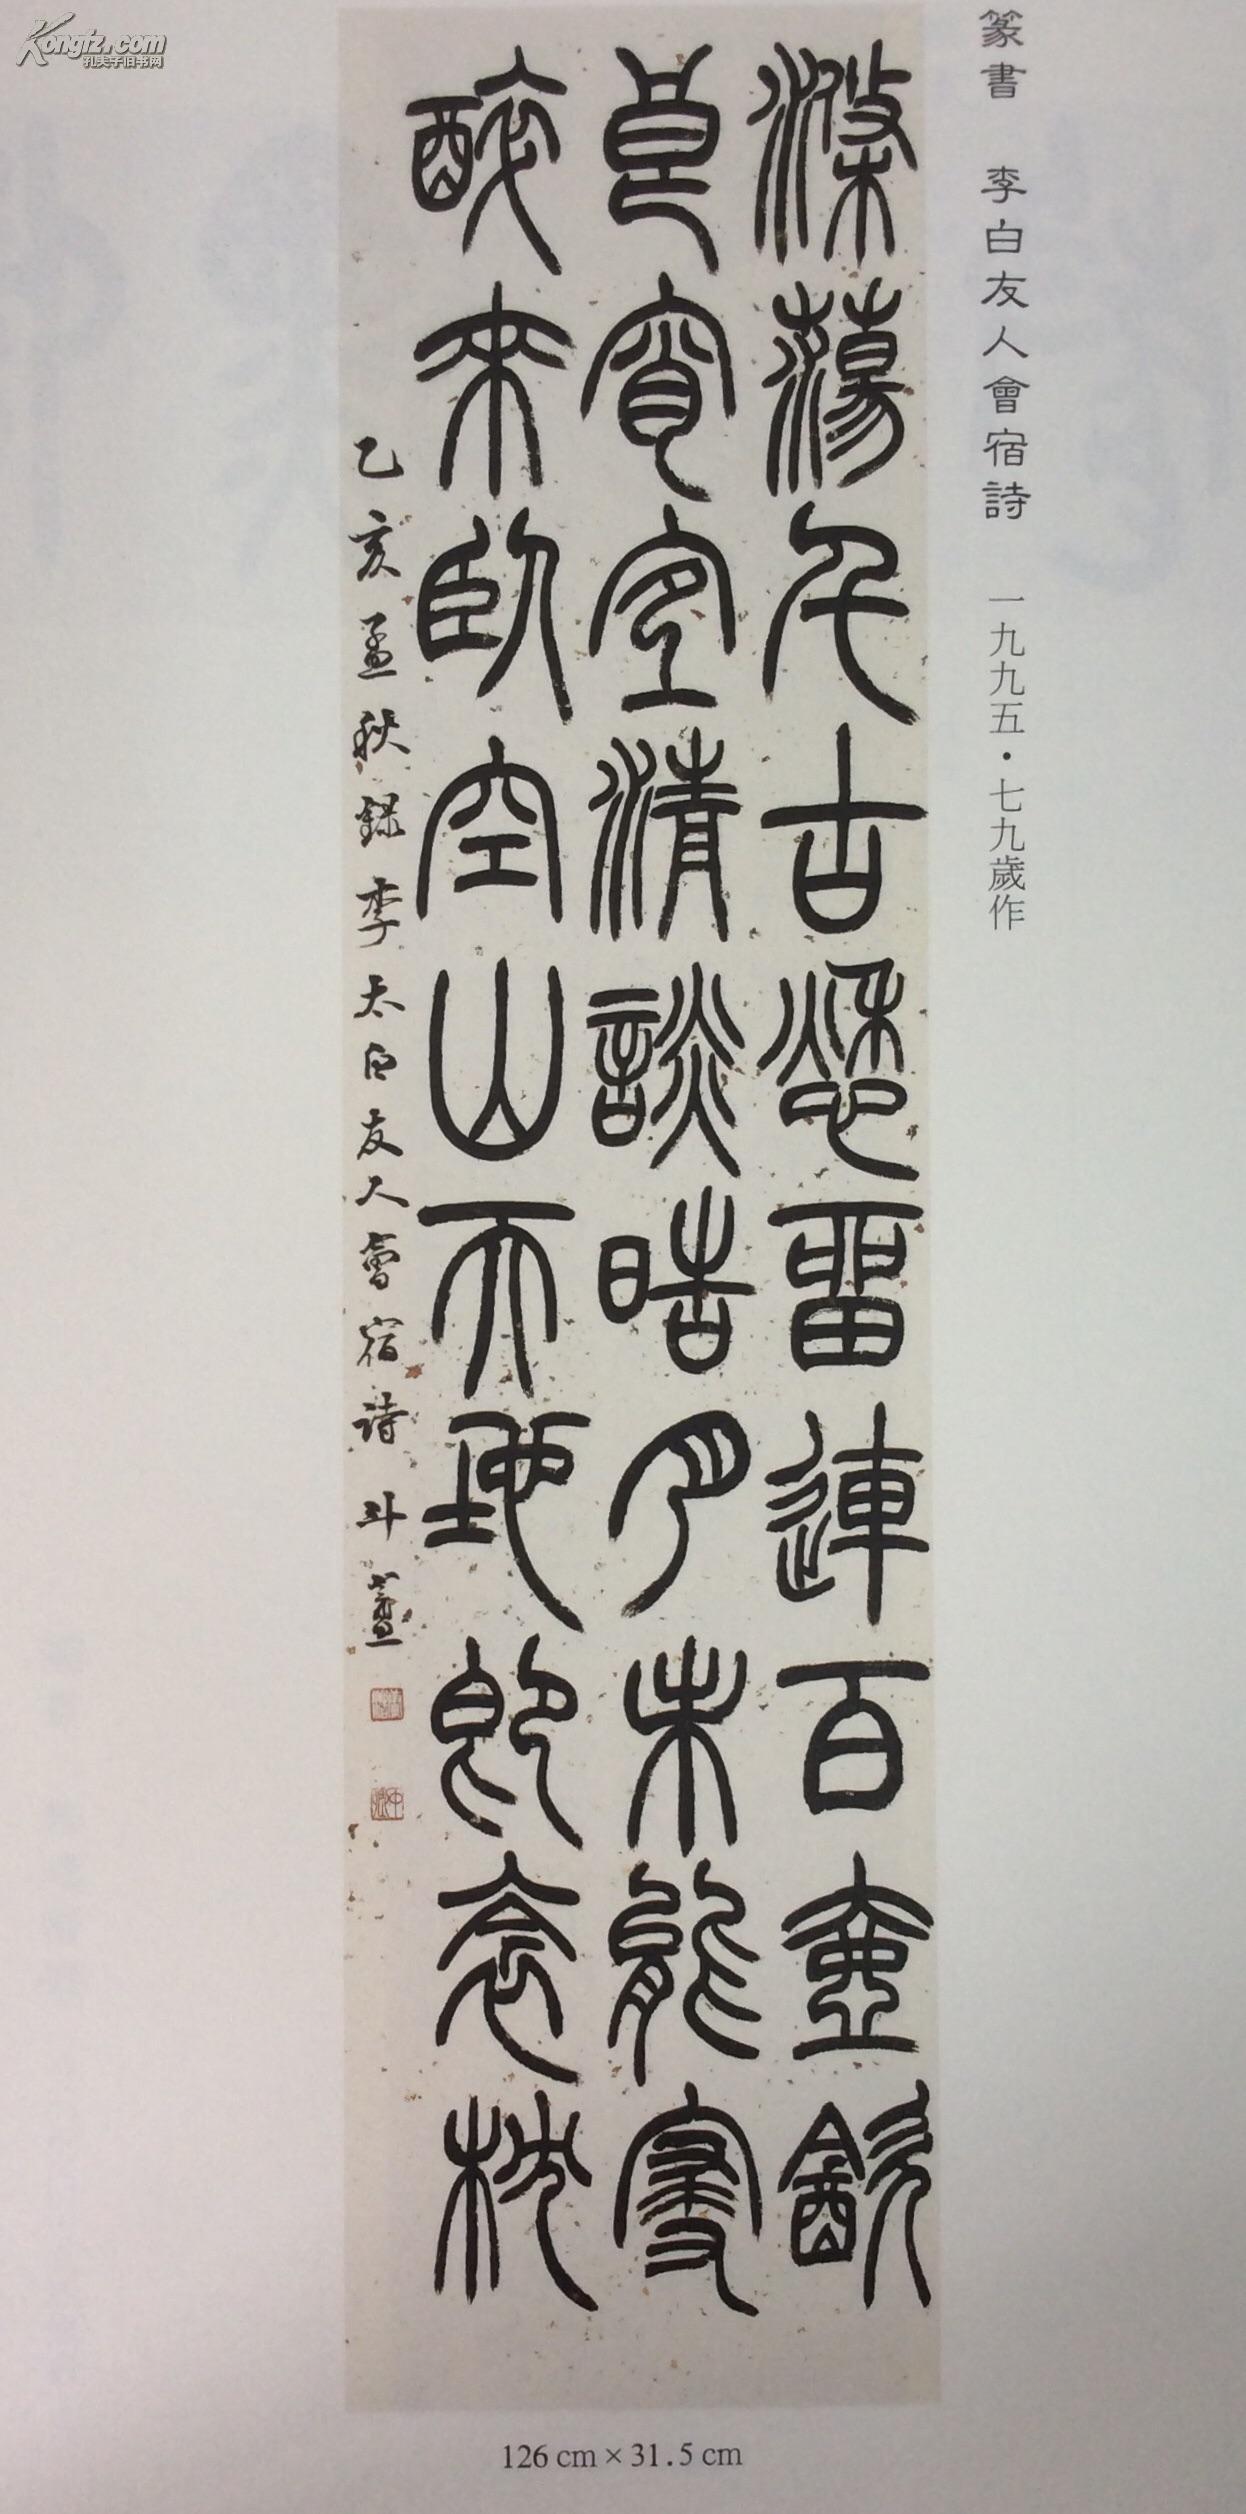 篆書　李白友人會宿詩　一九九五·七九歲作
滌蕩千古愁留連百壺飲
良宵宜清談皓月未能寢
醉來臥空山天地即衾枕
乙亥孟秋錄李太白友人會宿詩 斗盦
126 cm × 31.5 cm
Kongfz.com
孔夫子旧书网